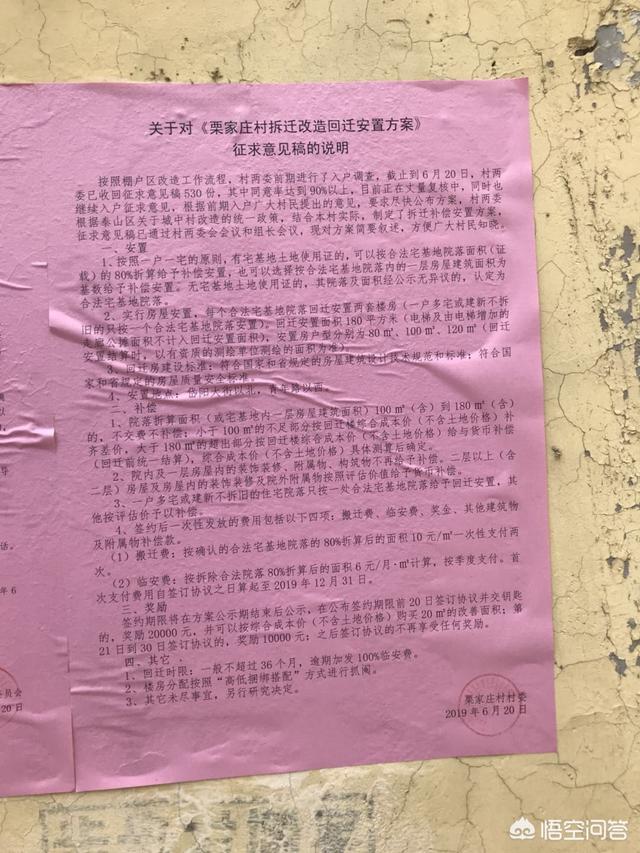 关于对《栗家庄村拆迁改造回迁安置方案》
征求意见稿的说明
按照棚户区改造工作流程，村两委前期进行了入户调查，截止到6月20日，村两
委已收回征求意见稿530份，其中同意率达到90%以上，目前正在丈量复核中，同时也
继续入户征求意见，根据前期入户广大村民提出的意见，要求尽快公布方案，村两委
根据泰山区关于城中村改造的统一政策，结合本村实际，制定了拆迁补偿安置方案，
征求意见稿已通过村两委会会议和组长会议，现对方案简要叙述，方便广大村民知晓。
一、安置
1、按照一户一宅的原则，有宅基地土地使用证的，可以按合法宅基地院落面积（证
载）的80%折算给予补偿安置，也可以选择按合法宅基地院落内的一层房屋建筑面积为
基数给予补偿安置。无宅基地土地使用证的，其院落及面积经公示无异议的，认定为
合法宅基地院落。
2、实行房屋安置，每个合法宅基地院落回迁安置两套楼房（一户多宅或建新不拆
旧的只按一个合法宅基地院落安置），回迁安置面积180平方米（电梯及由电梯增加的
走廊公摊面积不计入回迁安置面积），安置房户型分别为80㎡、100㎡、120㎡（回迁
安置结算时，以有资质的测绘单位测绘的面积为准）
3、回迁房建设标准：符合国家和省规定的房屋建筑设计技术规范和标准；符合国
家和省规定的房屋质量安全标准。
4、安置地点：岱阳大街以北，青年路以西。
二、补偿
1、院落折算面积（或宅基地内一层房屋建筑面积）100㎡（含）到180㎡（含）
的，不交费不补偿；小于100㎡的不足部分按回迁楼综合成本价（不含土地价格）补
齐差价，大于180㎡的超出部分按回迁楼综合成本价（不含土地价格）给与货币补偿
（回迁前统一结算），综合成本价（不含土地价格）具体测算后确定。
2、院内及一层房屋内的装饰装修、附属物、构筑物不再给予补偿。二层以上（含
二层）房屋及房屋内的装饰装修及院外附属物按照评估价值给予货币补偿。
3、一户多宅或建新不拆旧的住宅院落只按一处合法宅基地院落给予回迁安置，其
他按评估价予以补偿。
4、签约后一次性发放的费用包括以下四项：搬迁费、临安费、奖金、其他建筑物
及附属物补偿款。
（1）搬迁费：按确认的合法宅基地院落的80%折算后的面积10元/㎡一次性支付两
次。
（2）临安费：按拆除合法院落80%折算后的面积6元/月·㎡计算，按季度支付。首
次支付费用自签订协议之日算起至2019年12月31日。
三、奖励
签约期限将在方案公示期结束后公示，在公布签约期限前20日签订协议并交钥匙
的，奖励20000元，并可以按综合成本价（不含土地价格）购买20㎡的改善面积；第
21日到30日签订协议的，奖励10000元；之后签订协议的不再享受任何奖励。
四、其它
1、回迁时限：一般不超过36个月，逾期加发100%临安费。
2、楼房分配按照“高低捆绑搭配”方式进行抓阄。
3、其它未尽事宜，另行研究决定。
栗家庄村村委
2019年6月20日
导
话。
年6
员会
日
悟空问答